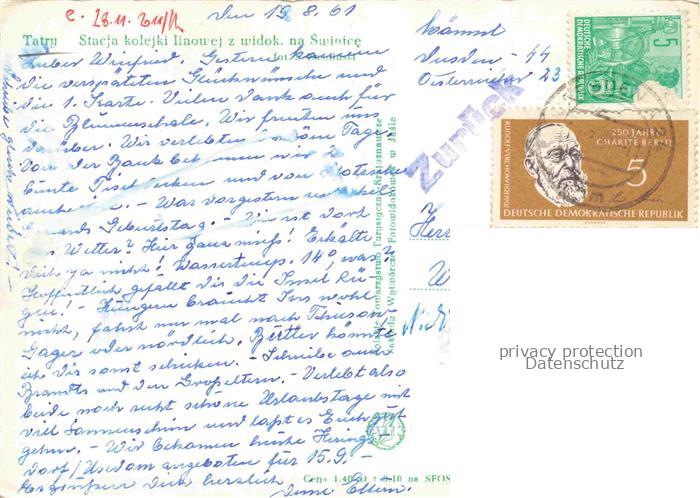 e. 28.11.
Den 19.8.61
Tatry Stacja kolejki linowej z widok. na Świnicę
Lieber Winfried, Gestern kamen
die verspäteten Glückwünsche und
die 1. Karte. Vielen Dank auch für
die Blumenschale. Wir freuten uns
darüber. Wir verlebten schöne Tage.
Von der Bank bekamen wir 2
bunte Tischdecken und von
- War vorgestern
Geburtstag. - Wie ist dort
das Wetter? Hier ganz mies! Erkälte
Dich ja nicht! Wassertemp. 14°, was?
Hoffentlich gefällt Dir die Insel Rü-
gen! - Hungern braucht Ihr wohl
nicht, fahrt nur mal nach Thiessow
Gager oder nördlich. Butter könnte
ich Dir sonst schicken. - Schreibe auch
Brandts und den Großeltern. - Verlebt also
beide noch recht schöne Urlaubstage mit
viel Sonnenschein und laßt es Euch gut
gehen. - Wir bekamen heute Herings-
dorf/Usedom angeboten für 15.9. -
Es grüßen Dich herzlich
Deine Eltern.
Cena 1.40 zł + 0.10 na SFOS
Polskie Towarzystwo Turystyczno-Krajoznawcze
Dresden - 44
Österreicher 23
Zurück
5
DEUTSCHE DEMOKRATISCHE REPUBLIK
250 JAHRE
CHARITÉ BERLIN
5
RUDOLF VIRCHOW 1821-1902
DEUTSCHE DEMOKRATISCHE REPUBLIK
privacy protection
Datenschutz